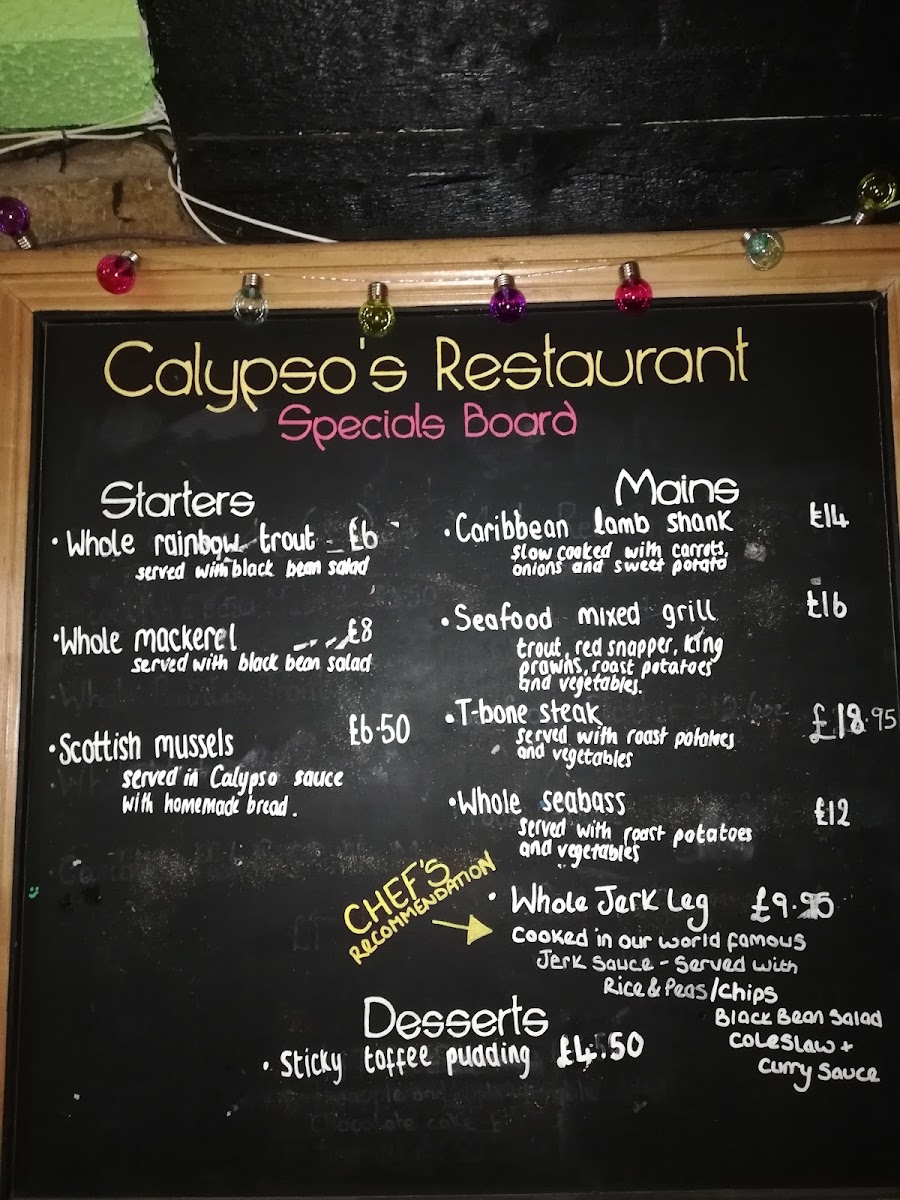 Calypso's Restaurant
Specials Board
Starters
• Whole rainbow trout - £6
served with black bean salad
• Whole mackerel £8
served with black bean salad
• Scottish mussels £6.50
served in Calypso sauce
with homemade bread.
Mains
• Caribbean lamb shank £14
slow cooked with carrots,
onions and sweet potato
• Seafood mixed grill £16
trout, red snapper, king
prawns, roast potatoes
and vegetables.
• T-bone steak £18.95
served with roast potatoes
and vegetables
• Whole seabass £12
served with roast potatoes
and vegetables
CHEF'S
RECOMMENDATION
• Whole Jerk Leg £9.95
Cooked in our world famous
Jerk Sauce - Served with
Rice & Peas/Chips
Black Bean Salad
Coleslaw +
Curry Sauce
Desserts
• Sticky toffee pudding £4.50